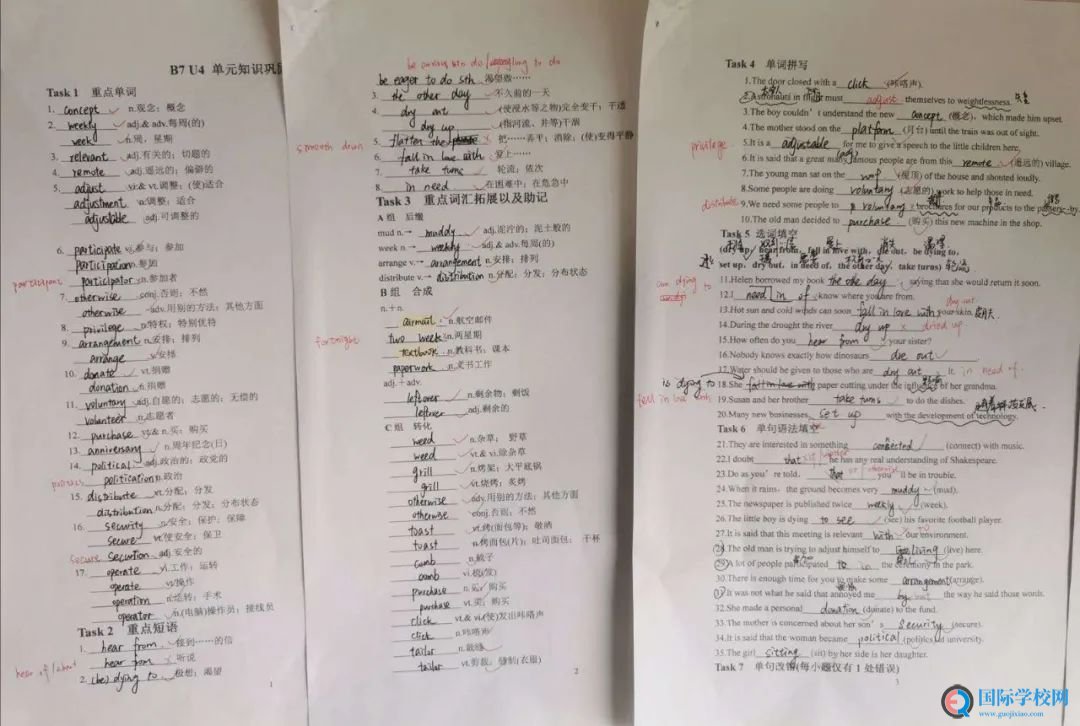 B7 U4 单元知识巩
Task 1 重点单词
1. concept n.观念；概念
2. weekly adj.& adv.每周(的)
week n.周，星期
3. relevant adj.有关的；切题的
4. remote adj.遥远的；偏僻的
5. adjust vi.& vt.调整；(使)适合
adjustment n.调整；适合
adjustable adj.可调整的
6. participate vi.参与；参加
participation n.参加
participant n.参加者
7. otherwise conj.否则；不然
otherwise adv.用别的方法；其他方面
8. privilege n.特权；特别优待
9. arrangement n.安排；排列
arrange v.安排
10. donate vt.捐赠
donation n.捐赠
11. voluntary adj.自愿的；志愿的；无偿的
volunteer n.志愿者
12. purchase vt.& n.买；购买
13. anniversary n.周年纪念(日)
14. political adj.政治的；政党的
politication n.政治
politics
15. distribute vt.分配；分发
distribution n.分配；分发；分布状态
16. security n.安全；保护；保障
secure vt.使安全；保卫
secure Secution adj.安全的
17. operate vi.工作；运转
operate vt.操作
operation n.运转；手术
operator n.(电脑)操作员；接线员
Task 2 重点短语
1. hear from 接到……的信
hear of/about hear from × 听说
2. (be) dying to 极想；渴望
1
be eager to do sth 渴望做……
3. the other day 不久前的一天
4. dry out (使浸水等之物)完全变干；干透
dry up (指河流、井等)干涸
smooth down 5. flatten the × 把……弄平；消除；(使)变得平静
6. fall in love with 爱上……
7. take turns 轮流；依次
8. in need 在困难中；在危急中
Task 3 重点词汇拓展以及助记
A 组 后缀
mud n.→ muddy adj.泥泞的；泥土般的
week n.→ weekly adj.& adv.每周(的)
arrange v.→ arrangement n.安排；排列
distribute v.→ distribution n.分配；分发；分布状态
B 组 合成
n.+ n.
airmail n.航空邮件
fortnight two week n.两星期
textbook n.教科书；课本
paperwork n.文书工作
adj.+ adv.
leftover n.剩余物；剩饭
leftover adj.剩余的
C 组 转化
weed n.杂草；野草
weed vt.& vi.除杂草
grill n.烤架；大平底锅
grill vt.烧烤；炙烤
otherwise adv.用别的方法；其他方面
otherwise conj.否则；不然
toast vt.烤(面包等)；敬酒
toast n.烤面包(片)；吐司面包；干杯
comb n.梳子
comb vt.梳(发)
purchase n.买；购买
purchase vt.买；购买
click vt.& vi.(使)发出咔嗒声
click n.咔嗒声
tailor n.裁缝
tailor vt.剪裁；缝制(衣服)
2
Task 4 单词拼写
1.The door closed with a click (咔嗒声).
2.Astronauts in flight must adjust themselves to weightlessness. 失重
3.The boy couldn't understand the new concept (概念), which made him upset.
4.The mother stood on the platform (月台) until the train was out of sight.
privilege 5.It is a adjustable for me to give a speech to the little children here.
6.It is said that a great many famous people are from this remote (遥远的) village.
7.The young man sat on the roof (屋顶) of the house and shouted loudly.
8.Some people are doing voluntary (志愿的) work to help those in need.
distribute 9.We need some people to voluntary brochures for our products to the passers-by.
10.The old man decided to purchase (购买) this new machine in the shop.
Task 5 选词填空
(dry up, hear from, fall in love with, die out, be dying to,
set up, dry out, in need of, the other day, take turns) 轮流
11.Helen borrowed my book the othe day, saying that she would return it soon.
am dying to 12.I need in of know where you are from.
dry out
13.Hot sun and cold winds can soon fall in love with your skin. 皮肤
14.During the drought the river dry up × dried up
15.How often do you hear from your sister?
16.Nobody knows exactly how dinosaurs die out.
17.Water should be given to those who are dry out. in need of.
is dying to 18.She fall in love with paper cutting under the influence of her grandma.
fell in love with 19.Susan and her brother take turns to do the dishes.
20.Many new businesses set up with the development of technology.
Task 6 单句语法填空
21.They are interested in something connected (connect) with music.
22.I doubt that × if/whether he has any real understanding of Shakespeare.
23.Do as you're told, that or/otherwise you'll be in trouble.
24.When it rains, the ground becomes very muddy (mud).
25.The newspaper is published twice weekly (week).
26.The little boy is dying to see (see) his favorite football player.
27.It is said that this meeting is relevant with to our environment.
28.The old man is trying to adjust himself to living (live) here.
29.A lot of people participated to in the ceremony in the park.
30.There is enough time for you to make some arrangement (arrange).
31.It was not what he said that annoyed me by but the way he said those words.
32.She made a personal donation (donate) to the fund.
33.The mother is concerned about her son's security (secure).
34.It is said that the woman became political (politics) in university.
35.The girl sitting (sit) by her side is her daughter.
Task 7 单句改错(每小题仅有 1 处错误)
3
国际学校网
www.guojixiao.com